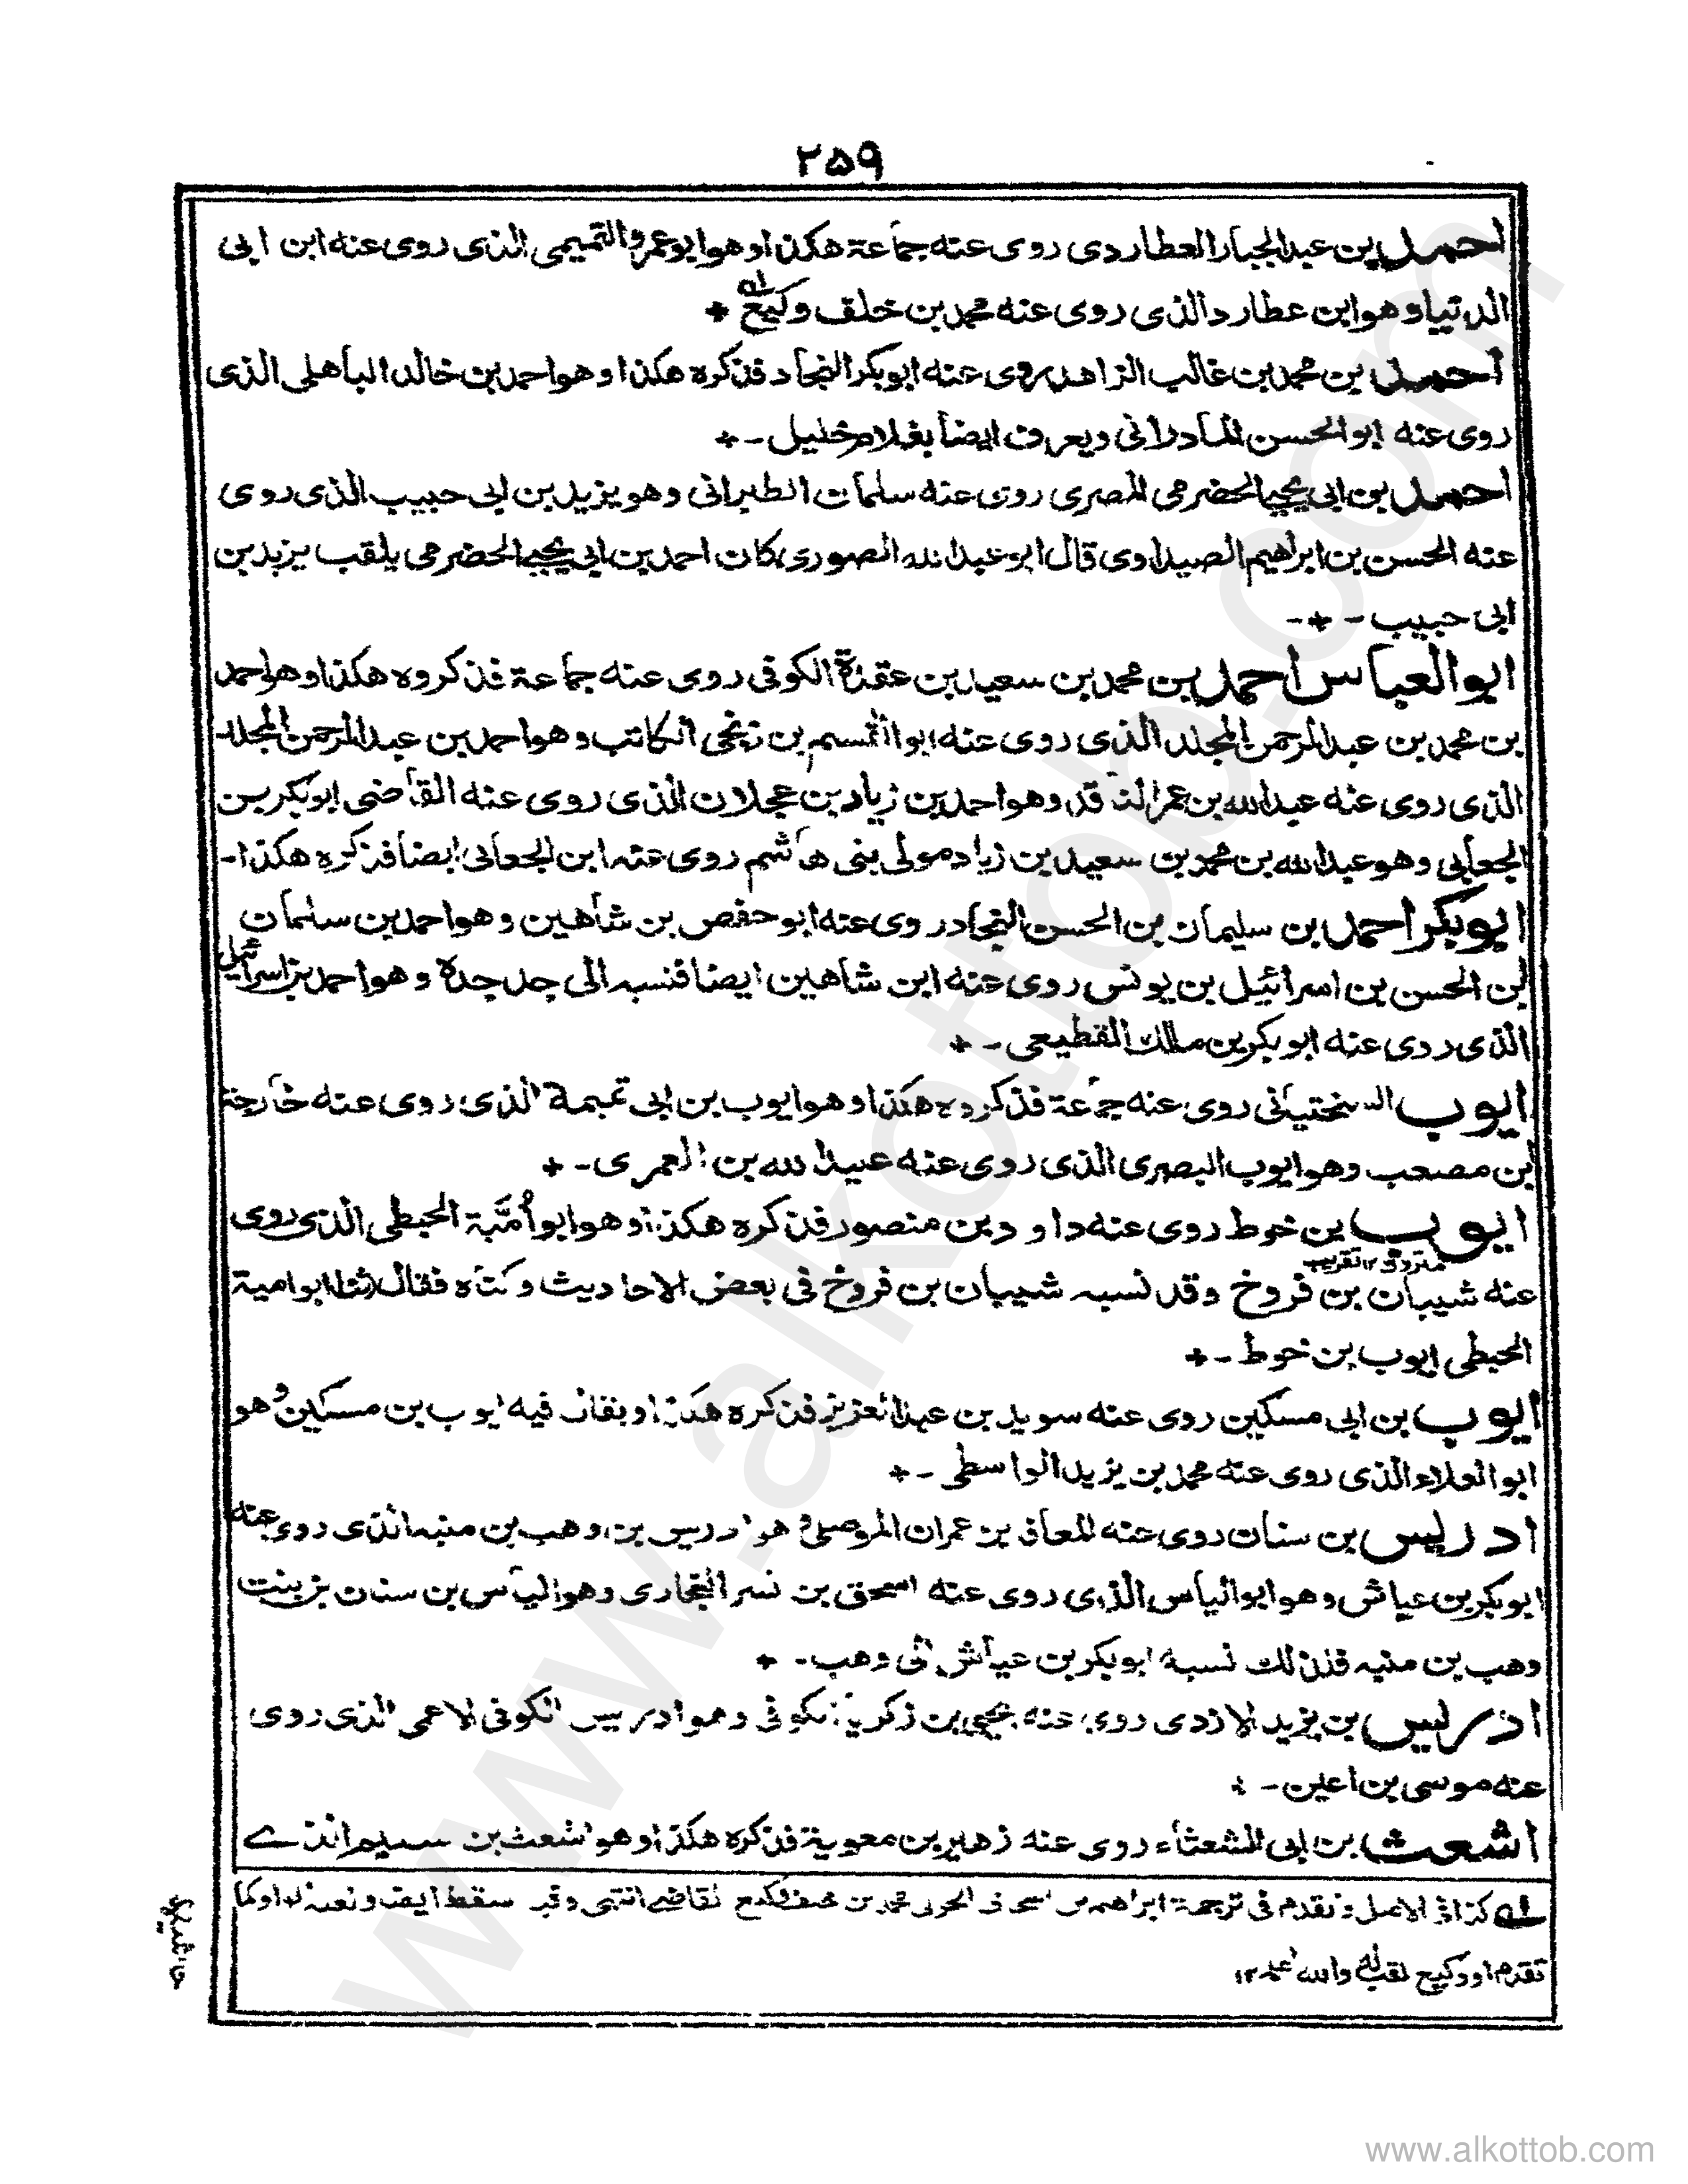 ۲۵۹
احمد بن عبد الجبار العطاردی روی عنه جماعة هكذا وهو ابو عمر والتمیمی الذی روی عنه ابن ابی
الدنیا وهو ابن عطارد الذی روی عنه محمد بن خلف وکیع له +
احمد بن محمد بن غالب الزاهد روی عنه ابو بکر النجاد فذکره هکذا وهو احمد بن خالد الباهلی الذی
روی عنه ابو الحسن المادرائی ویعرف ایضا بغلام خلیل - +
احمد بن ابی یحیی الحضرمی المصری روی عنه سلیمان الطبرانی وهو یزید بن ابی حبیب الذی روی
عنه الحسن بن ابراهیم الصیداوی قال ابو عبد الله الصوری کان احمد بن ابی یحیی الحضرمی یلقب یزید بن
ابی حبیب - + -
ابو العباس احمد بن محمد بن سعید بن عقدة الکوفی روی عنه جماعة فذکروه هکذا وهو احمد
بن محمد بن عبد الرحمن المجلد الذی روی عنه ابو القسم بن زنجی الکاتب وهو احمد بن عبد الرحمن المجلد
الذی روی عنه عبد الله بن عمر الناقد وهو احمد بن زیاد بن عجلان الذی روی عنه القاضی ابو بکر بن
الجعابی وهو عبد الله بن محمد بن سعید بن زیاد مولی بنی هاشم روی عنه ابن الجعابی ایضا فذکره هکذا -
ابو بکر احمد بن سلیمان بن الحسن النجاد روی عنه ابو حفص بن شاهین وهو احمد بن سلیمان
بن الحسن بن اسرائیل بن یونس روی عنه ابن شاهین ایضا فنسبه الی جد جده وهو احمد بن اسرائیل
الذی روی عنه ابو بکر بن ملك القطیعی - +
ایوب السختیانی روی عنه جماعة فذکروه هکذا وهو ایوب بن ابی تمیمة الذی روی عنه خارجة
بن مصعب وهو ایوب البصری الذی روی عنه عبید الله بن العمری - +
ایوب بن خوط روی عنه داود بن منصور فذکره هکذا وهو ابو أمیة الحبطی الذی روی
متروك ۱۲ تقریب
عنه شیبان بن فروخ وقد نسبه شیبان بن فروخ فی بعض الاحادیث وکناه فقال ثنا ابو امیة
الحبطی ایوب بن خوط - +
ایوب بن ابی مسکین روی عنه سوید بن عبد العزیز فذکره هکذا ویقال فیه ایوب بن مسکین وهو
ابو العلاء الذی روی عنه محمد بن یزید الواسطی - +
ادریس بن سنان روی عنه المعافی بن عمران الموصلی وهو ادریس بن وهب بن منبه الذی روی عنه
ابو بکر بن عیاش وهو ابو الیاس الذی روی عنه اسحق بن بشر البخاری وهو الیاس بن سنان بن بنت
وهب بن منبه فذلك نسبه ابو بکر بن عیاش الی وهب - +
ادریس بن یزید الازدی روی عنه یحیی بن زکریا الکوفی وهو ادریس الکوفی الاعمی الذی روی
عنه موسی بن اعین - +
اشعث بن ابی الشعثاء روی عنه زهیر بن معویة فذکره هکذا وهو اشعث بن سلیم الذے
له کذا فی الاصل وتقدم فی ترجمة ابراهیم بن اسحق الحربی محمد بن خلف وکیع القاضی انتهی وقد سقط ولعله اوکما
تقدم او وکیع لقب له والله اعلم ۱۲
www.alkottob.com